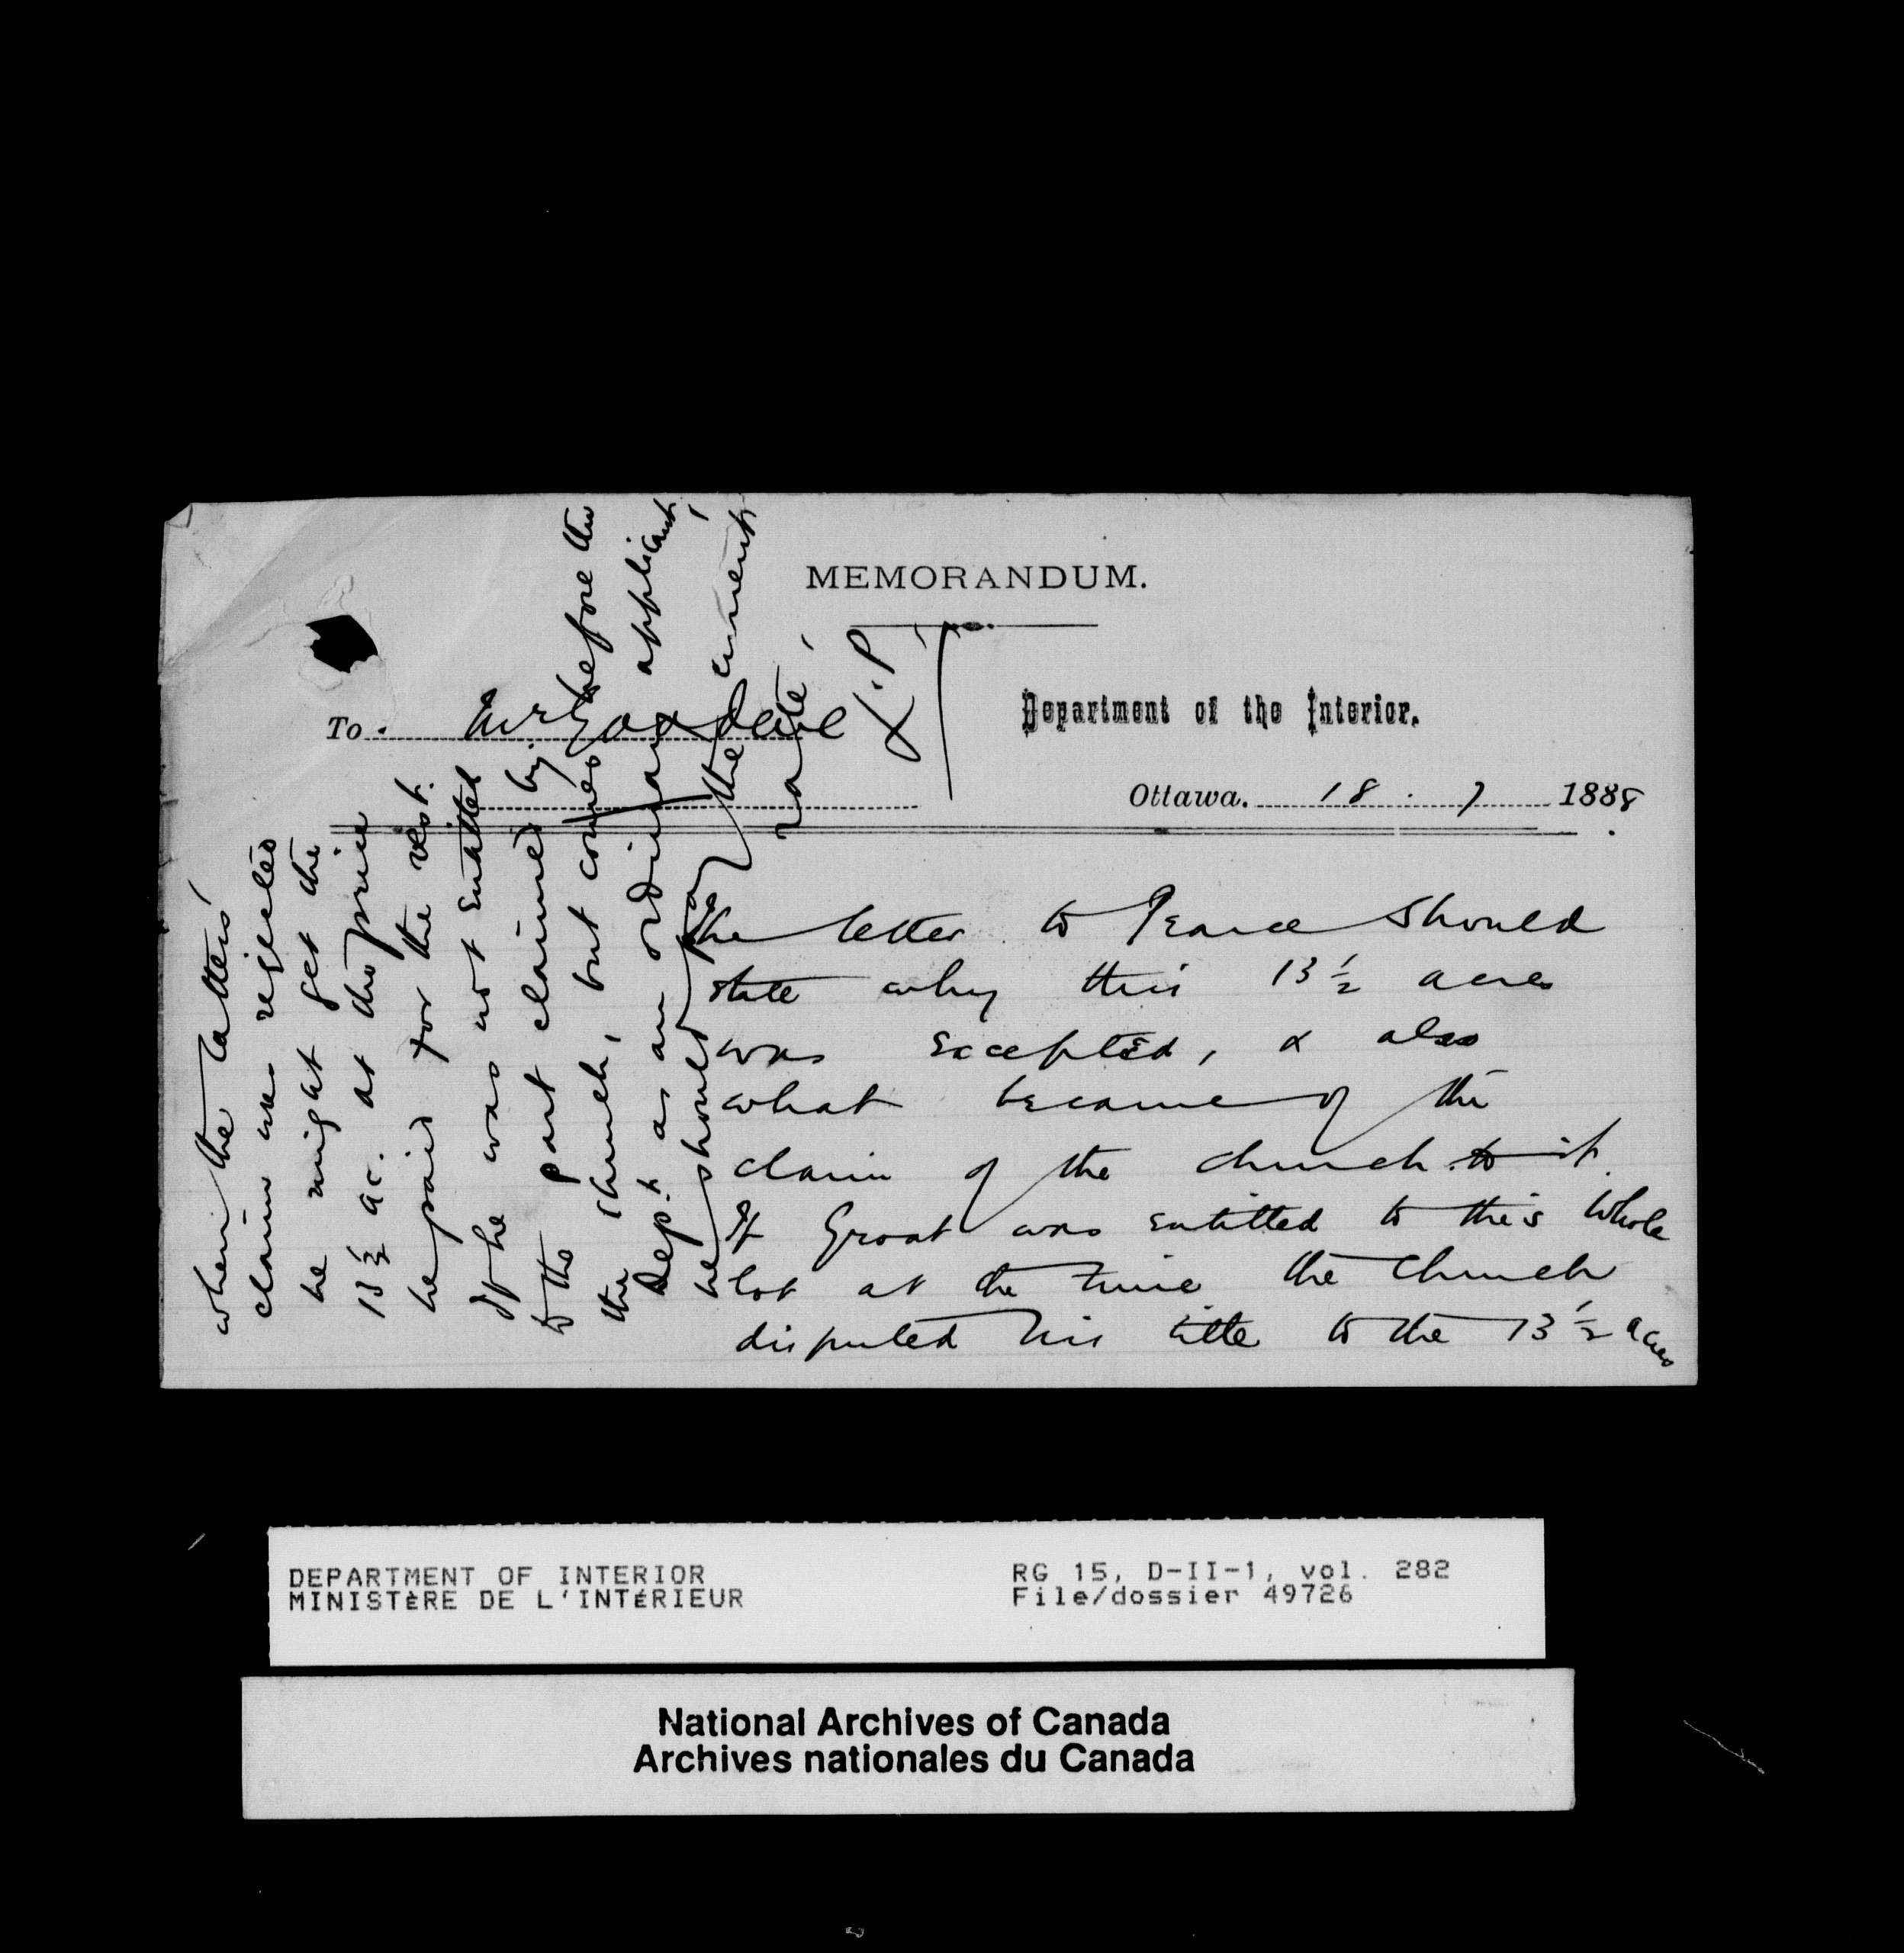 MEMORANDUM.
Department of the Interior.
To Mr Goodeve
Ottawa. 18. 7 1888.
The letter to Pearce should
state why this 13 1/2 acres
was excepted, & also
what became of the
claim of the church to it.
If Groat was entitled to this whole
lot at the time the church
disputed his title to the 13 1/2 acres
when the latters'
claim was rejected
he might get the
13 1/2 ac. at the price
he paid for the rest.
If he was not entitled
to the part claimed by
the church, but comes before the
Dept as an ordinary applicant,
he should pay the current
rate.
DEPARTMENT OF INTERIOR
MINISTÈRE DE L'INTÉRIEUR
RG 15, D-II-1, vol. 282
File/dossier 49726
National Archives of Canada
Archives nationales du Canada